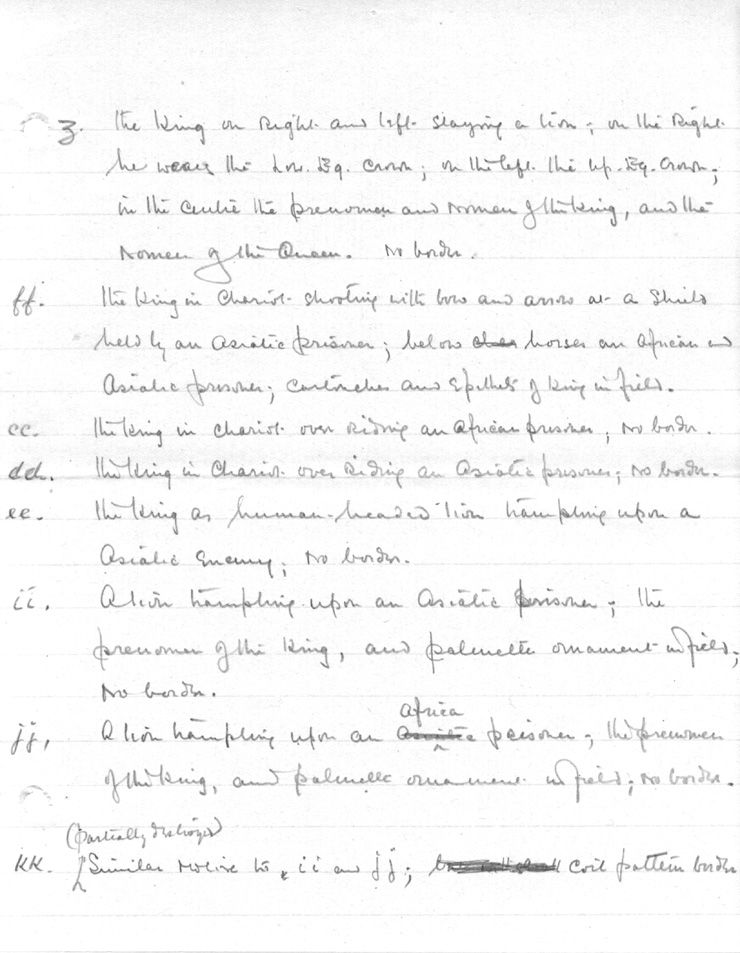 z. the King on Right and left slaying a lion; on the Right
he wears the Low. Eg. Crown; on the left the Up. Eg. Crown;
in the centre the prenomen and Nomen of the King, and the
Nomen of the Queen. No border.
ff. the King in Chariot shooting with bow and arrow at a Shield
held by an Asiatic prisoner; below horses an African and
Asiatic prisoner; cartouches and Epithets of King in field.
cc. the King in Chariot over Riding an African prisoner; No border.
dd. the King in Chariot over Riding an Asiatic prisoner; No border.
ee. the King as human-headed lion trampling upon a
Asiatic Enemy; No border.
ii. A lion trampling upon an Asiatic prisoner; the
prenomen of the King, and palmette ornament in field;
No border.
Africa
jj, A lion trampling upon an prisoner; the prenomen
of the King, and palmette ornament in field; No border.
(partially destroyed)
KK. Similar motive to ii and jj; coil pattern border